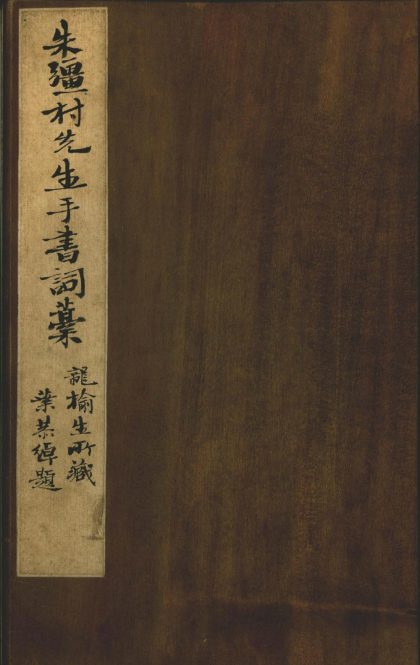 朱彊村先生手書詞藳
龍榆生所藏
葉恭綽題